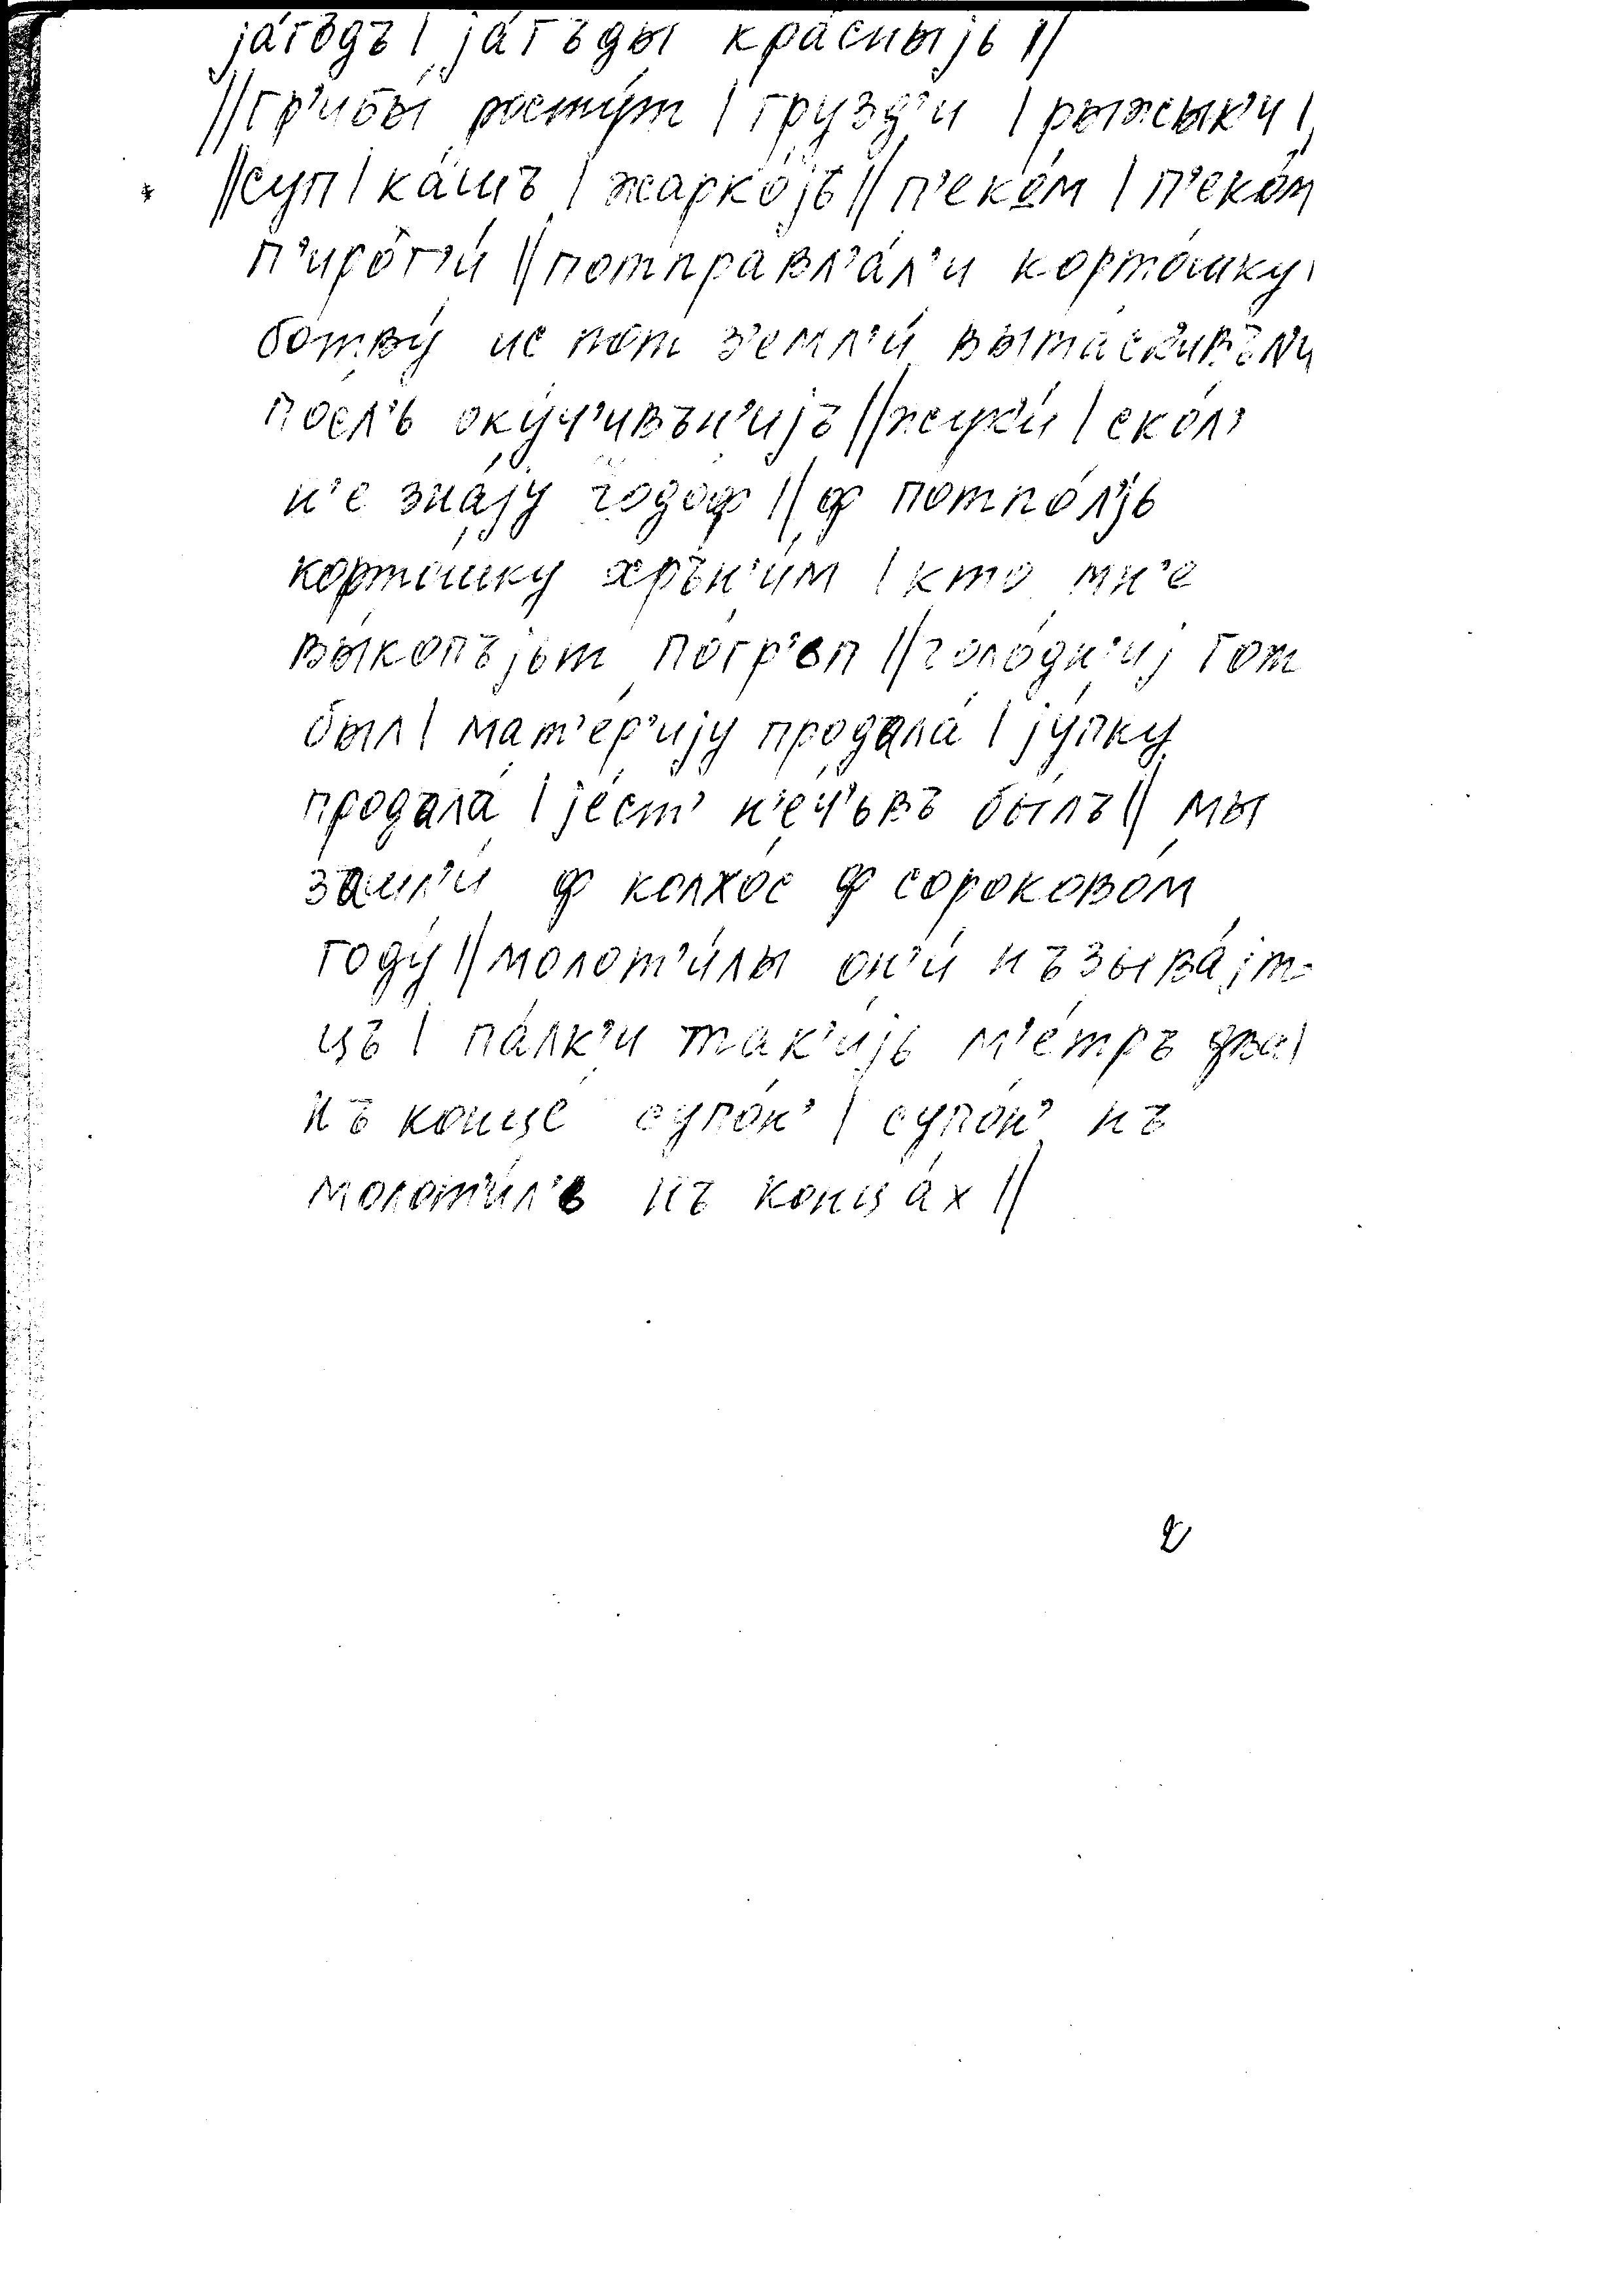 jа́гъдъ | jа́гъды кра́сныjь ||
|| гр'ибы́ росту́т | грузд'и | рыжык'и |
|| суп | ка́шъ | жарко́jь || п'еко́м | п'еко́м
п'ирог'и́ || потправл'а́л'и корто́шку |
ботву́ ис пот з'емл'и́ выта́ск'ивъли
посл'ь оку́ч'ивън'иjъ || жук'и́ | скол'
н'е зна́jу годо́ф || ф потпо́лjь
корто́шку хрън'и́м | кто мн'е
вы́копъjьт по́гр'ьп || голо́дн'иj гот
был | мат'е́р'иjу продала́ | jу́пку
продала́ | jе́ст' н'е́ч'ьвъ бы́лъ || мы
зашл'и́ ф колхо́с ф сороково́м
году́ || молот'и́лы он'и́ нъзыва́jт-
цъ | па́лк'и так'и́jь м'е́тръ два |
нъ конце́ супо́н' | супо́н' нъ
молот'и́л'ь нъ конца́х ||